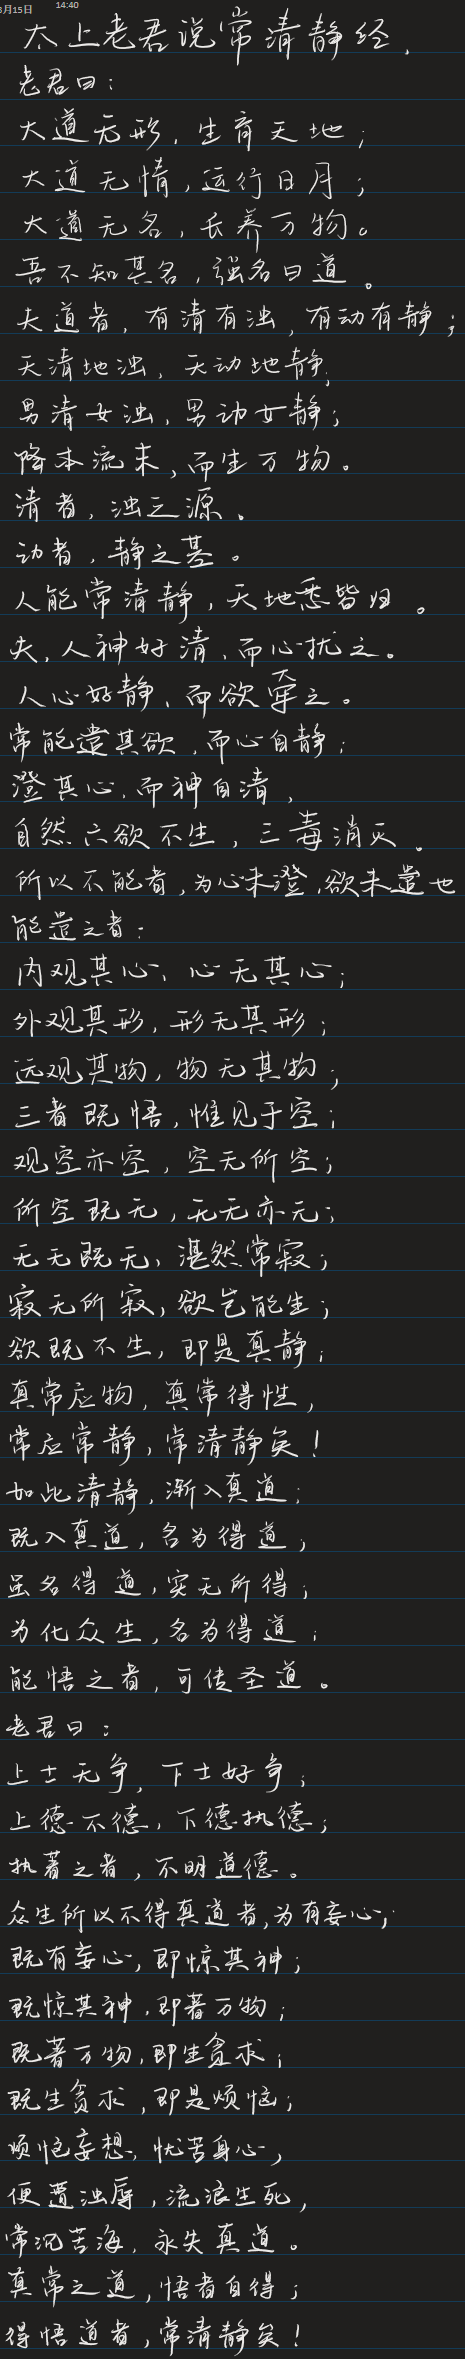 3月15日 14:40
太上老君说常清静经,
老君曰:
大道无形,生育天地;
大道无情,运行日月;
大道无名,长养万物。
吾不知其名,强名曰道。
夫道者,有清有浊,有动有静;
天清地浊,天动地静;
男清女浊,男动女静;
降本流末,而生万物。
清者,浊之源。
动者,静之基。
人能常清静,天地悉皆归。
夫,人神好清,而心扰之。
人心好静,而欲牵之。
常能遣其欲,而心自静;
澄其心,而神自清,
自然六欲不生,三毒消灭。
所以不能者,为心未澄,欲未遣也
能遣之者:
内观其心、心无其心;
外观其形,形无其形;
远观其物,物无其物;
三者既悟,惟见于空;
观空亦空,空无所空;
所空既无,无无亦无;
无无既无,湛然常寂;
寂无所寂,欲岂能生;
欲既不生,即是真静;
真常应物,真常得性,
常应常静,常清静矣!
如此清静,渐入真道;
既入真道,名为得道;
虽名得道,实无所得;
为化众生,名为得道;
能悟之者,可传圣道。
老君曰:
上士无争,下士好争;
上德不德,下德执德;
执著之者,不明道德。
众生所以不得真道者,为有妄心;
既有妄心,即惊其神;
既惊其神,即著万物;
既著万物,即生贪求;
既生贪求,即是烦恼;
烦恼妄想,忧苦身心,
便遭浊辱,流浪生死,
常沉苦海,永失真道。
真常之道,悟者自得;
得悟道者,常清静矣!